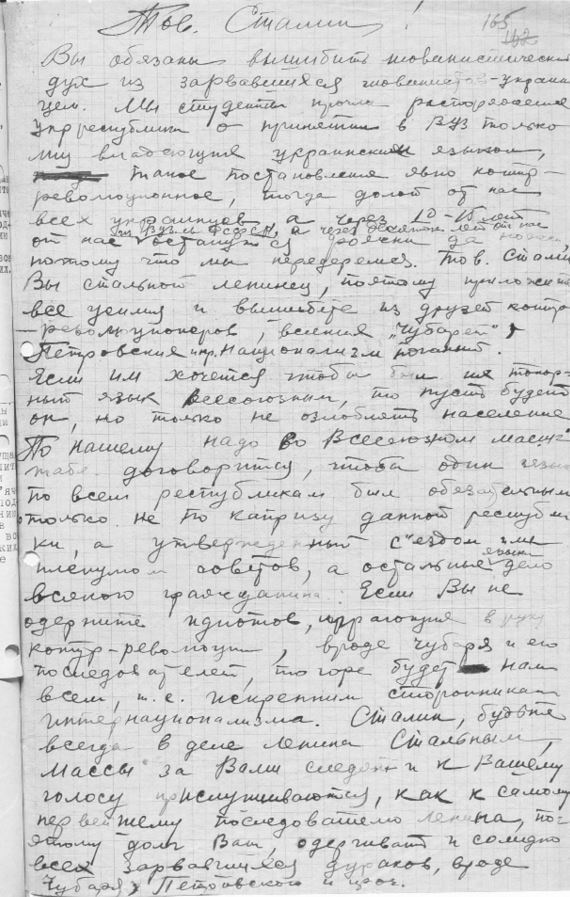 Тов. Сталин! 165
162
Вы обязаны вышибить шовинистический
дух из зарвавшихся шовинистов-украин
цев. Мы студенты прочли распоряжение
укрреспублики о принятии в ВУЗ только
лиц владеющих украинским языком,
такое постановление явно контр-
революционное, тогда долой от нас
всех украинцев, а через 10-15 лет
из ВУЗ'ы РСФСР, а через десяток лет от нас
от нас останутся рожки да ножки,
потому что мы передеремся. Тов. Сталин
Вы стальной ленинец, поэтому приложите
все усилия и вышибите из друзей контр
-революционеров, всяких "Чубарей",
Петровских и пр. Национализм поганый.
Если им хочется чтобы был их топор-
ный язык всесоюзным, то пусть будет
он, но только не озлоблять население
По нашему надо во Всесоюзном масш-
табе договориться, чтобы один язык
по всем республикам был обязательным
только не по капризу данной республи
ки, а утвержденный с'ездом или
пленумом советов, а остальные языки дело
всякого гражданина. Если Вы не
одержите идиотов, играющих в руку
контр-революции, вроде Чубаря и его
последователей, то горе будет нам
всем, т.е. искренним сторонникам
интернационализма. Сталин, будьте
всегда в деле Ленина Стальным,
массы за Вами следят и к Вашему
голосу прислушиваются, как к самому
первейшему последователю Ленина, поэ-
тому долг Ваш, одергивать и солидно
всех зарвавшихся дураков, вроде
Чубаря, Петровского и проч.